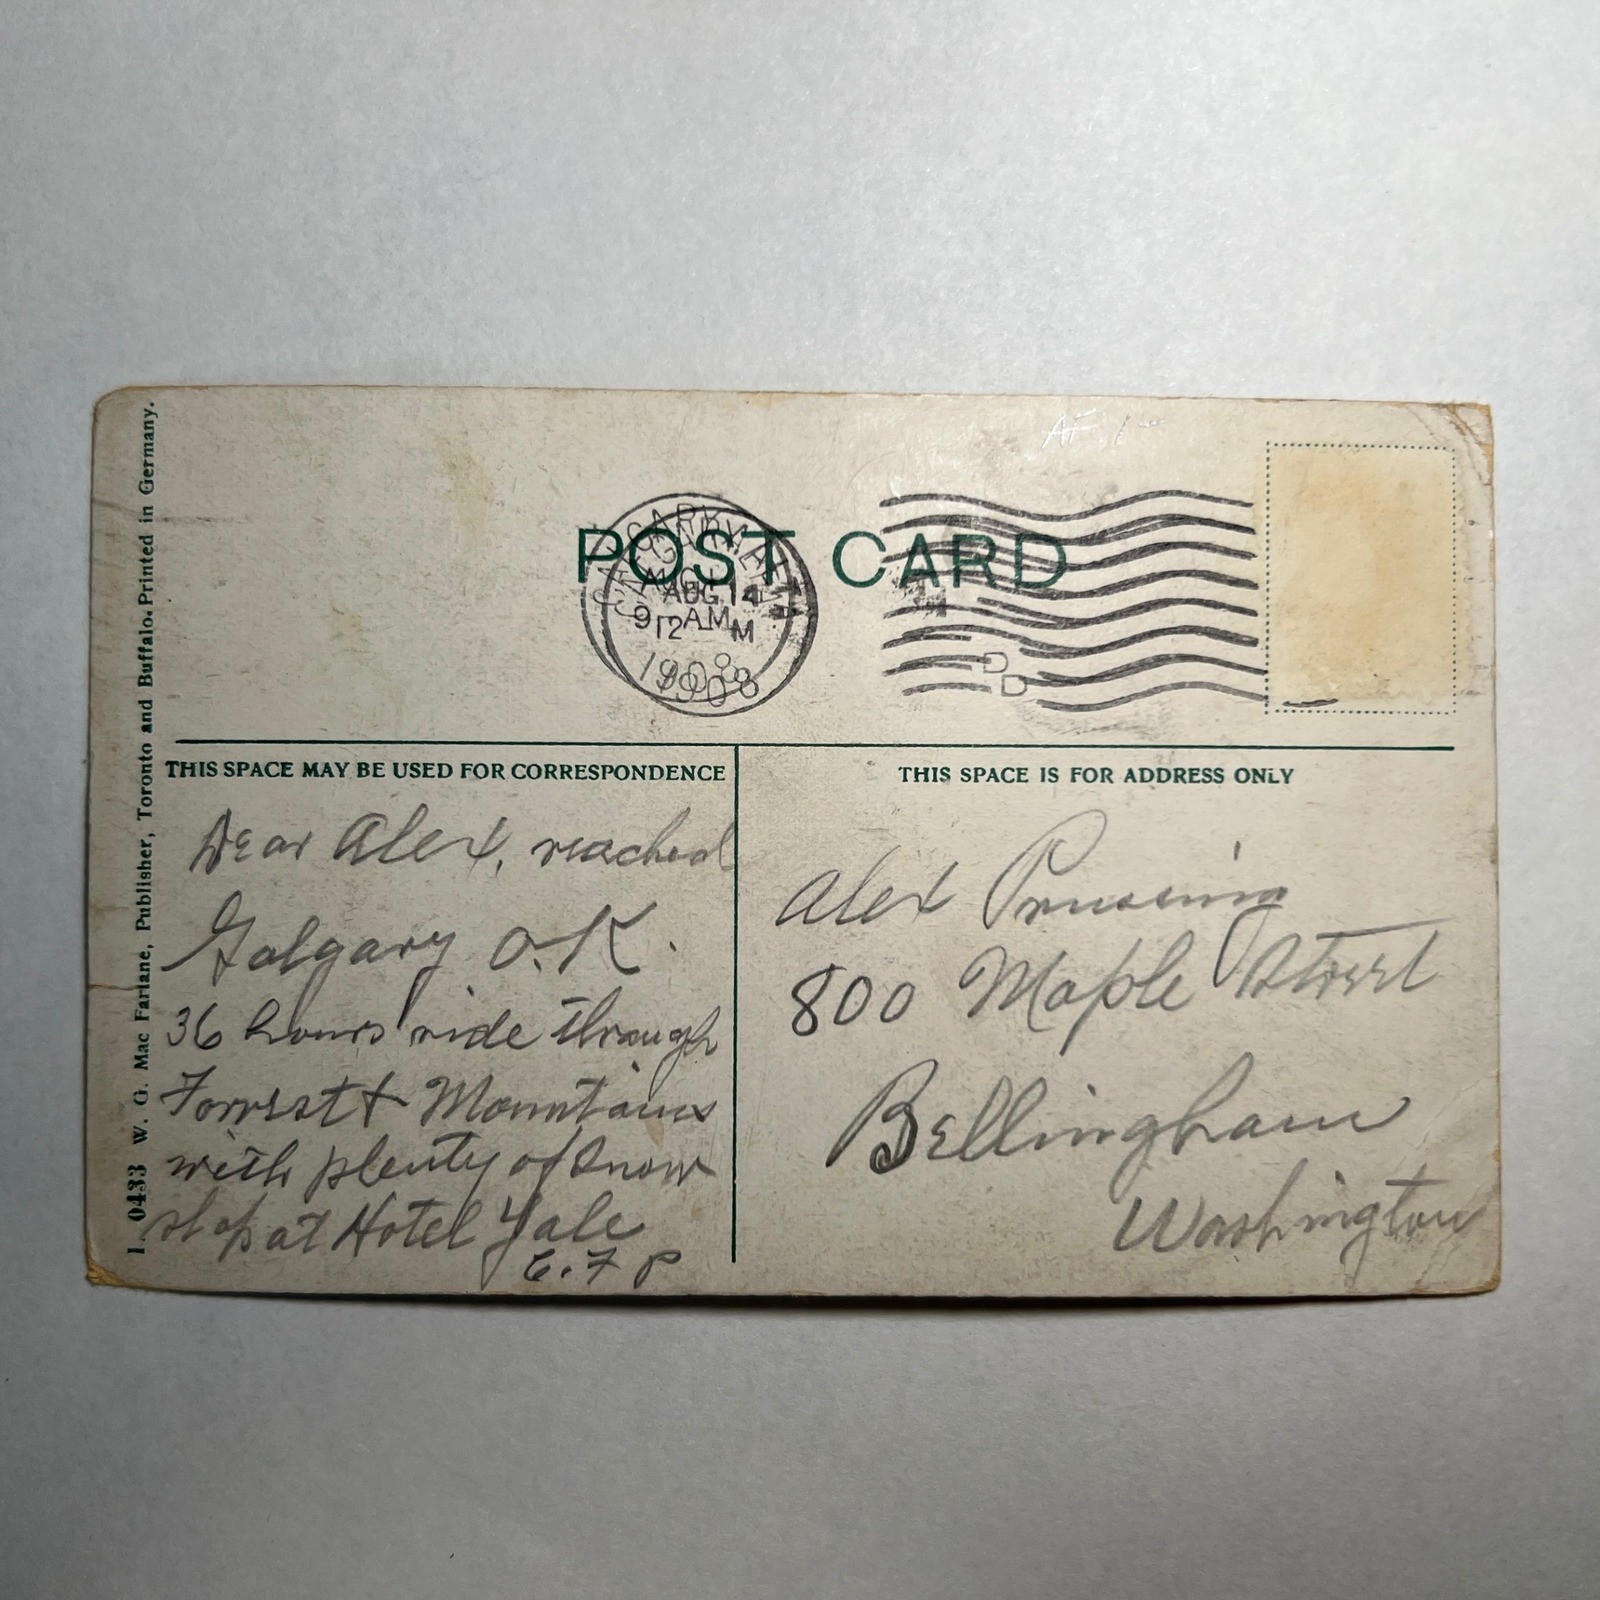 AF 1
POST CARD
CALGARY
AUG 14
9 AM
12 M
1908
1908
THIS SPACE MAY BE USED FOR CORRESPONDENCE
THIS SPACE IS FOR ADDRESS ONLY
Dear Alex, reached
Galgary O.K.
36 hours ride through
Forrest & Mountains
with plenty of Snow
stop at Hotel Yale
Alex
800 Maple Street
Bellingham
Washington
I. 0433 W. G. Mac Farlane, Publisher, Toronto and Buffalo. Printed in Germany.